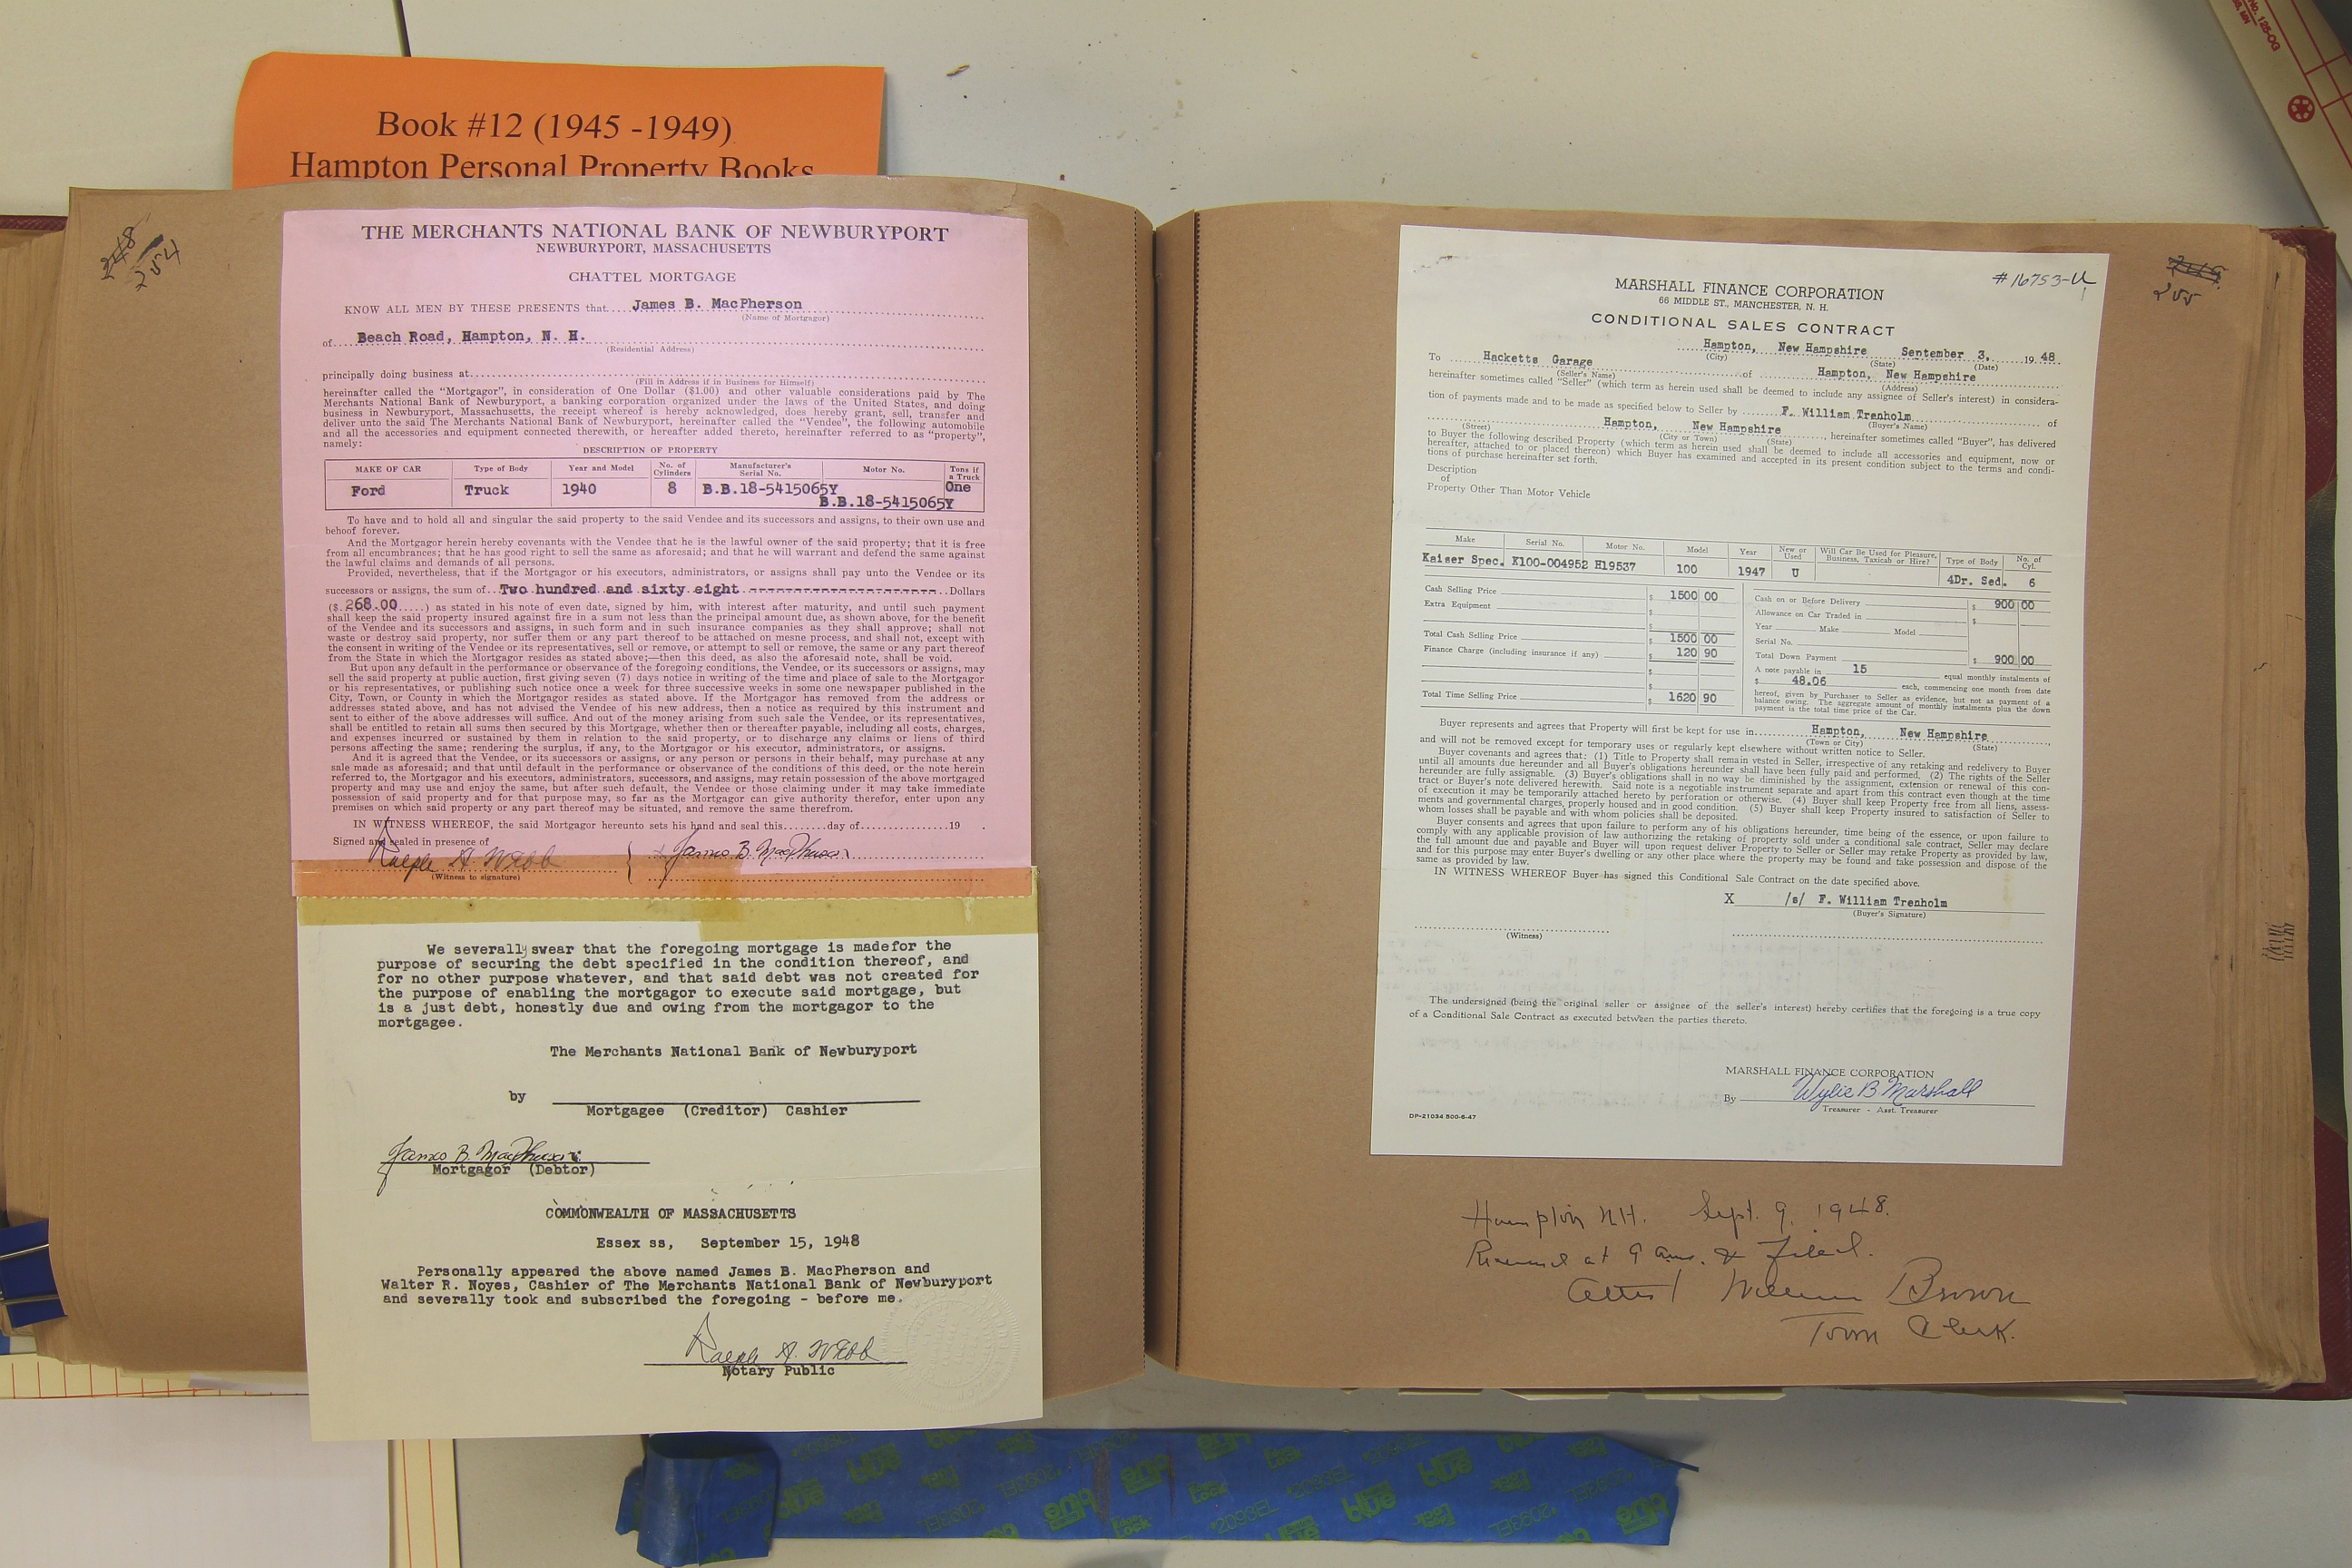 Book #12 (1945 -1949)
Hampton Personal Property Books
248
254
THE MERCHANTS NATIONAL BANK OF NEWBURYPORT
NEWBURYPORT, MASSACHUSETTS
CHATTEL MORTGAGE
KNOW ALL MEN BY THESE PRESENTS that James B. MacPherson
(Name of Mortgagor)
of Beach Road, Hampton, N. H.
(Residential Address)
principally doing business at
(Fill in Address if in Business for Himself)
hereinafter called the "Mortgagor", in consideration of One Dollar ($1.00) and other valuable considerations paid by The
Merchants National Bank of Newburyport, a banking corporation organized under the laws of the United States, and doing
business in Newburyport, Massachusetts, the receipt whereof is hereby acknowledged, does hereby grant, sell, transfer and
deliver unto the said The Merchants National Bank of Newburyport, hereinafter called the "Vendee", the following automobile
and all the accessories and equipment connected therewith, or hereafter added thereto, hereinafter referred to as "property",
namely:
DESCRIPTION OF PROPERTY
MAKE OF CAR Type of Body Year and Model No. of Cylinders Manufacturer's Serial No. Motor No. Tons if a Truck
Ford Truck 1940 8 B.B.18-5415065Y One
B.B.18-5415065Y
To have and to hold all and singular the said property to the said Vendee and its successors and assigns, to their own use and
behoof forever.
And the Mortgagor herein hereby covenants with the Vendee that he is the lawful owner of the said property; that it is free
from all encumbrances; that he has good right to sell the same as aforesaid; and that he will warrant and defend the same against
the lawful claims and demands of all persons.
Provided, nevertheless, that if the Mortgagor or his executors, administrators, or assigns shall pay unto the Vendee or its
successors or assigns, the sum of Two hundred and sixty eight ---------------------- Dollars
($ 268.00 ) as stated in his note of even date, signed by him, with interest after maturity, and until such payment
shall keep the said property insured against fire in a sum not less than the principal amount due, as shown above, for the benefit
of the Vendee and its successors and assigns, in such form and in such insurance companies as they shall approve; shall not
waste or destroy said property, nor suffer them or any part thereof to be attached on mesne process, and shall not, except with
the consent in writing of the Vendee or its representatives, sell or remove, or attempt to sell or remove, the same or any part thereof
from the State in which the Mortgagor resides as stated above;—then this deed, as also the aforesaid note, shall be void.
But upon any default in the performance or observance of the foregoing conditions, the Vendee, or its successors or assigns, may
sell the said property at public auction, first giving seven (7) days notice in writing of the time and place of sale to the Mortgagor
or his representatives, or publishing such notice once a week for three successive weeks in some one newspaper published in the
City, Town, or County in which the Mortgagor resides as stated above. If the Mortgagor has removed from the address or
addresses stated above, and has not advised the Vendee of his new address, then a notice as required by this instrument and
sent to either of the above addresses will suffice. And out of the money arising from such sale the Vendee, or its representatives,
shall be entitled to retain all sums then secured by this Mortgage, whether then or thereafter payable, including all costs, charges,
and expenses incurred or sustained by them in relation to the said property, or to discharge any claims or liens of third
persons affecting the same; rendering the surplus, if any, to the Mortgagor or his executor, administrators, or assigns.
And it is agreed that the Vendee, or its successors or assigns, or any person or persons in their behalf, may purchase at any
sale made as aforesaid; and that until default in the performance or observance of the conditions of this deed, or the note herein
referred to, the Mortgagor and his executors, administrators, successors, and assigns, may retain possession of the above mortgaged
property and may use and enjoy the same, but after such default, the Vendee or those claiming under it may take immediate
possession of said property and for that purpose may, so far as the Mortgagor can give authority therefor, enter upon any
premises on which said property or any part thereof may be situated, and remove the same therefrom.
IN WITNESS WHEREOF, the said Mortgagor hereunto sets his hand and seal this........day of....................19 .
Signed and sealed in presence of
Ralph A. Webb James B. MacPherson
(Witness to signature)
We severally swear that the foregoing mortgage is madefor the
purpose of securing the debt specified in the condition thereof, and
for no other purpose whatever, and that said debt was not created for
the purpose of enabling the mortgagor to execute said mortgage, but
is a just debt, honestly due and owing from the mortgagor to the
mortgagee.
The Merchants National Bank of Newburyport
by
Mortgagee (Creditor) Cashier
James B. MacPherson
Mortgagor (Debtor)
COMMONWEALTH OF MASSACHUSETTS
Essex ss, September 15, 1948
Personally appeared the above named James B. MacPherson and
Walter R. Noyes, Cashier of The Merchants National Bank of Newburyport
and severally took and subscribed the foregoing - before me.
Ralph A. Webb
Notary Public
255
#16753-U
MARSHALL FINANCE CORPORATION
66 MIDDLE ST., MANCHESTER, N. H.
CONDITIONAL SALES CONTRACT
Hampton, New Hampshire September 3, 19 48
(City) (State) (Date)
To Hacketts Garage of Hampton, New Hampshire
(Seller's Name) (Address)
hereinafter sometimes called "Seller" (which term as herein used shall be deemed to include any assignee of Seller's interest) in considera-
tion of payments made and to be made as specified below to Seller by F. William Trenholm of
(Buyer's Name)
Hampton, New Hampshire, hereinafter sometimes called "Buyer", has delivered
(Street) (City or Town) (State)
to Buyer the following described Property (which term as herein used shall be deemed to include all accessories and equipment, now or
hereafter, attached to or placed thereon) which Buyer has examined and accepted in its present condition subject to the terms and condi-
tions of purchase hereinafter set forth.
Description
of
Property Other Than Motor Vehicle
Make Serial No. Motor No. Model Year New or Used Will Car Be Used for Pleasure, Business, Taxicab or Hire? Type of Body No. of Cyl.
Kaiser Spec. K100-004952 H19537 100 1947 U 4Dr. Sed. 6
Cash Selling Price $ 1500 00
Extra Equipment $
Total Cash Selling Price $ 1500 00
Finance Charge (including insurance if any) $ 120 90
Total Time Selling Price $ 1620 90
Cash on or Before Delivery $ 900 00
Allowance on Car Traded in $
Year Make Model
Serial No.
Total Down Payment $ 900 00
A note payable in 15 equal monthly instalments of
$ 48.06 each, commencing one month from date
hereof, given by Purchaser to Seller as evidence, but not as payment of a
balance owing. The aggregate amount of monthly instalments plus the down
payment is the total time price of the Car.
Buyer represents and agrees that Property will first be kept for use in Hampton, New Hampshire,
(Town or City) (State)
and will not be removed except for temporary uses or regularly kept elsewhere without written notice to Seller.
Buyer covenants and agrees that: (1) Title to Property shall remain vested in Seller, irrespective of any retaking and redelivery to Buyer
until all amounts due hereunder and all Buyer's obligations hereunder shall have been fully paid and performed. (2) The rights of the Seller
hereunder are fully assignable. (3) Buyer's obligations shall in no way be diminished by the assignment, extension or renewal of this con-
tract or Buyer's note delivered herewith. Said note is a negotiable instrument separate and apart from this contract even though at the time
of execution it may be temporarily attached hereto by perforation or otherwise. (4) Buyer shall keep Property free from all liens, assess-
ments and governmental charges, properly housed and in good condition. (5) Buyer shall keep Property insured to satisfaction of Seller to
whom losses shall be payable and with whom policies shall be deposited.
Buyer consents and agrees that upon failure to perform any of his obligations hereunder, time being of the essence, or upon failure to
comply with any applicable provision of law authorizing the retaking of property sold under a conditional sale contract, Seller may declare
the full amount due and payable and Buyer will upon request deliver Property to Seller or Seller may retake Property as provided by law,
and for this purpose may enter Buyer's dwelling or any other place where the property may be found and take possession and dispose of the
same as provided by law.
IN WITNESS WHEREOF Buyer has signed this Conditional Sale Contract on the date specified above.
X /s/ F. William Trenholm
(Buyer's Signature)
(Witness)
The undersigned (being the original seller or assignee of the seller's interest) hereby certifies that the foregoing is a true copy
of a Conditional Sale Contract as executed between the parties thereto.
MARSHALL FINANCE CORPORATION
By Wylie B Marshall
Treasurer - Asst. Treasurer
DP-21034 500-6-47
Hampton N.H. Sept. 9, 1948.
Received at 9 a.m. & filed.
Attest William Brown
Town Clerk.